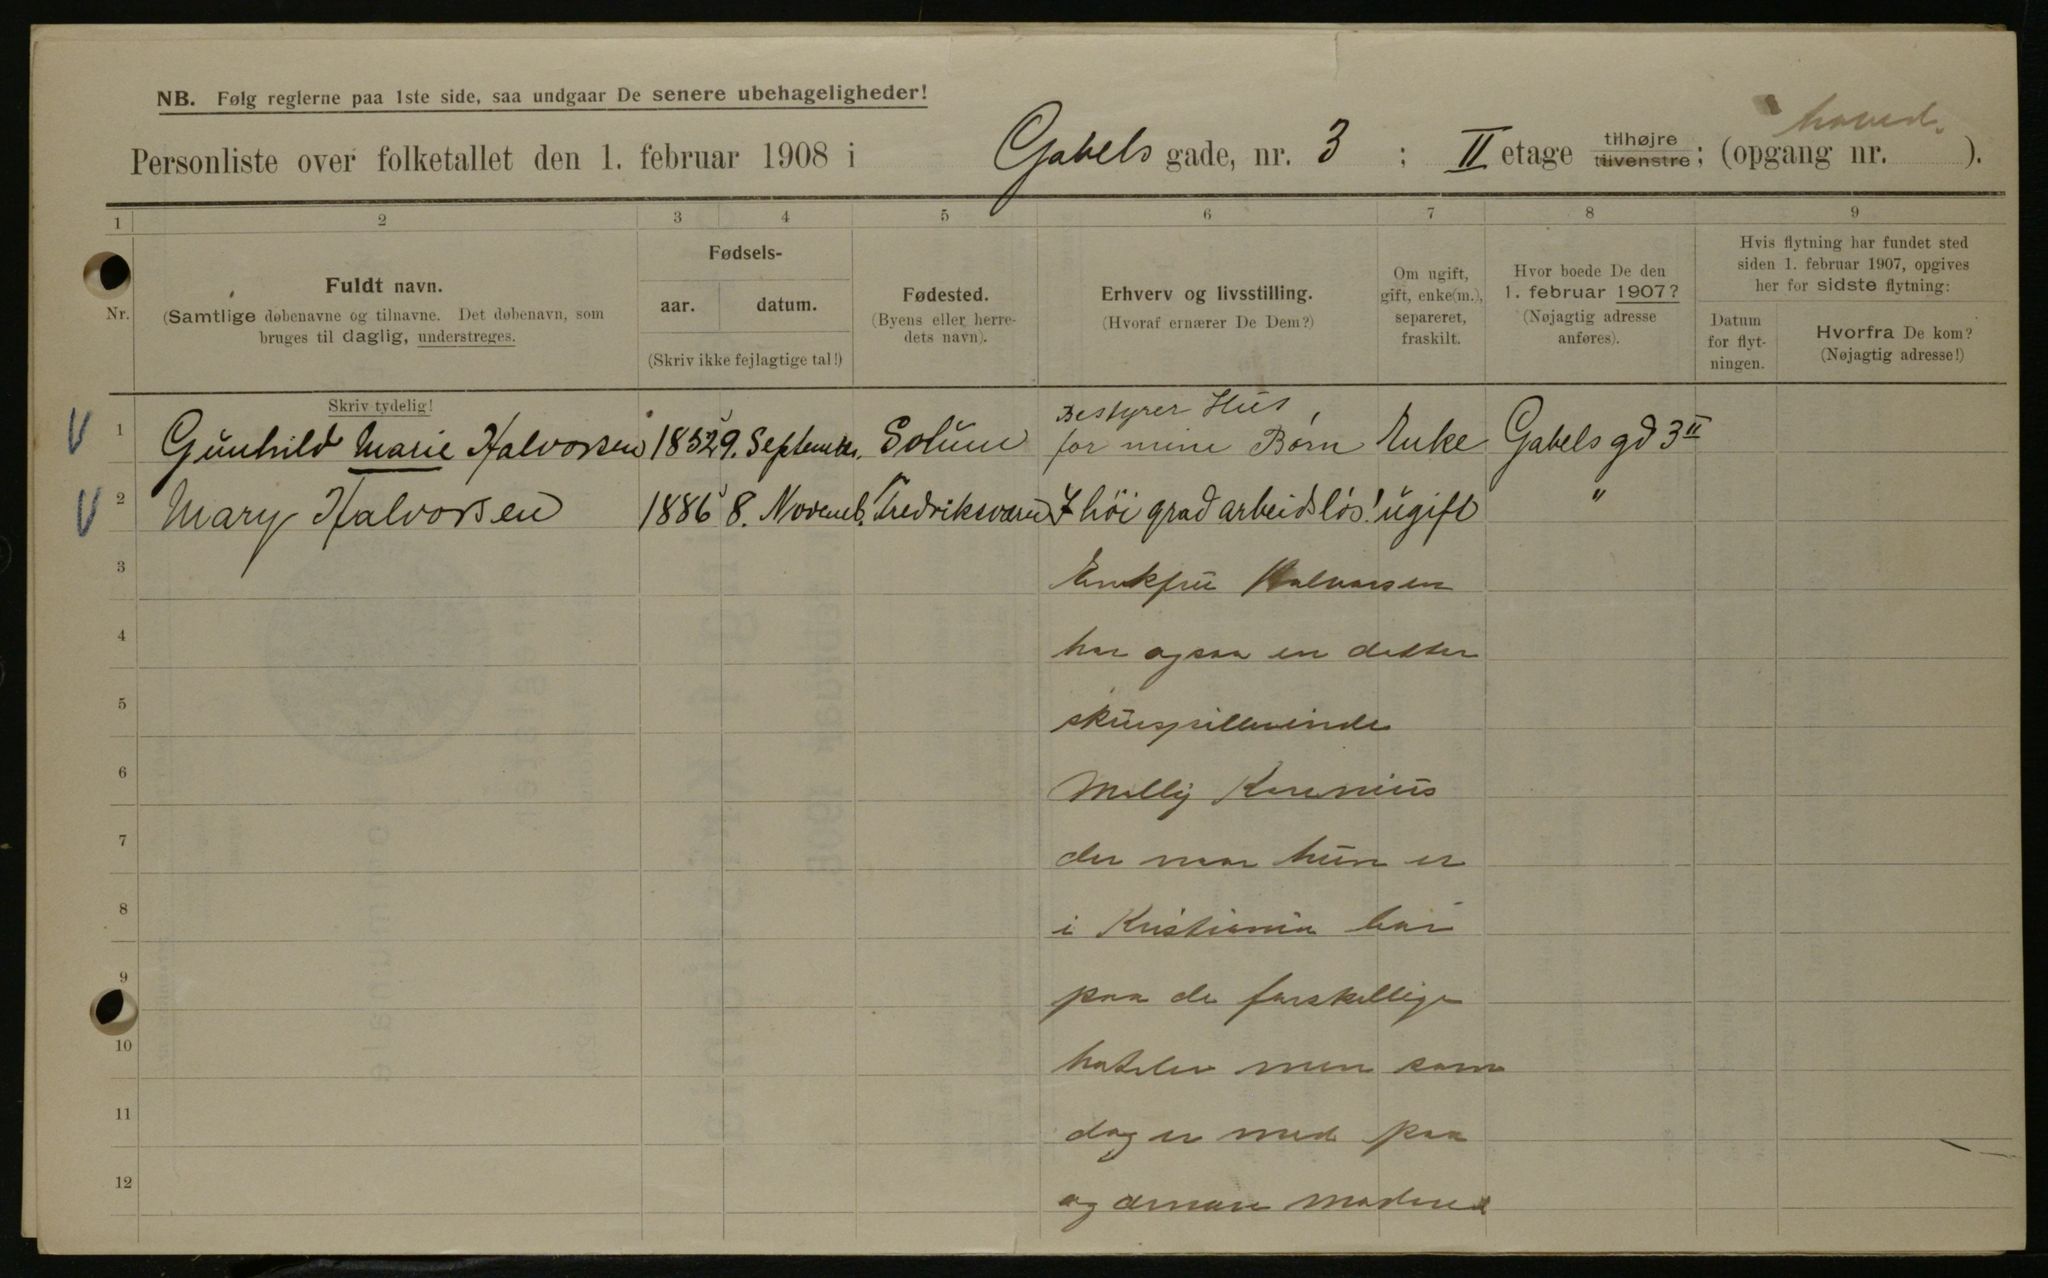 NB. Følg reglerne paa 1ste side, saa undgaar De senere ubehageligheder!
hoved.
Personliste over folketallet den 1. februar 1908 i Gabels gade, nr. 3 ; II etage tilhøjre tilvenstre; (opgang nr. ).
1 2 3 4 5 6 7 8 9
Nr.
Fuldt navn.
(Samtlige døbenavne og tilnavne. Det døbenavn, som
bruges til daglig, understreges.
Skriv tydelig!
Fødsels-
aar. datum.
(Skriv ikke fejlagtige tal!)
Fødested.
(Byens eller herre-
dets navn).
Erhverv og livsstilling.
(Hvoraf ernærer De Dem?)
Om ugift,
gift, enke(m.),
separeret,
fraskilt.
Hvor boede De den
1. februar 1907?
(Nøjagtig adresse
anføres).
Hvis flytning har fundet sted
siden 1. februar 1907, opgives
her for sidste flytning:
Datum
for flyt-
ningen.
Hvorfra De kom?
(Nøjagtig adresse!)
Bestyrer Hus
1 Gunhild Marie Halvorsen 1852 9. Septembr. Solum for mine Børn Enke Gabels gd 3 II
2 Mary Halvorsen 1886 8. Novemb. Fredriksværn I höi grad arbeidsløs! ugift "
3 Enkfru Halvorsen
4 har ogsaa en datter
5 skuespillerinde
6
7 der naar hun er
8 i Kristiania bor
9 paa de forskellige
10 hoteller men som
11 dog er med paa
12 og